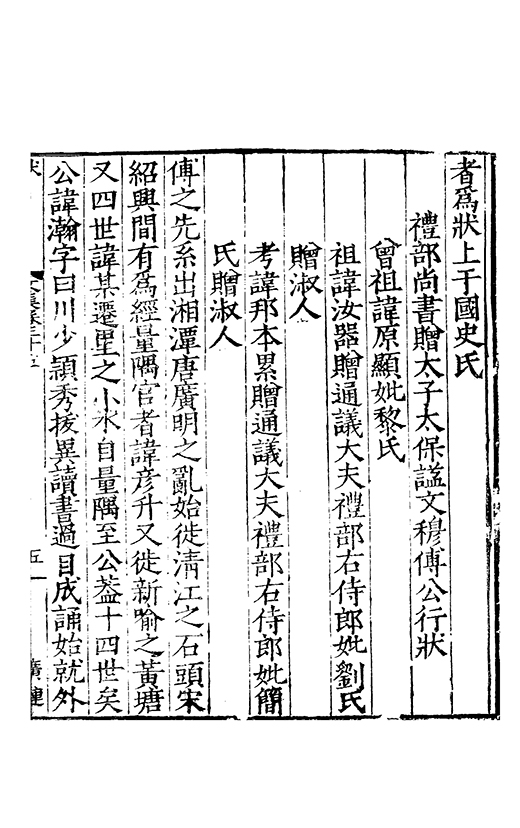 者爲狀上于國史氏
禮部尚書贈太子太保謚文穆傅公行狀
曾祖諱原顯妣黎氏
祖諱汝器贈通議大夫禮部右侍郎妣劉氏
贈淑人
考諱邦本累贈通議大夫禮部右侍郎妣簡
氏贈淑人
傅之先系出湘潭唐廣明之亂始徙清江之石頭宋
紹興間有爲經量隅官者諱彦升又徙新喻之黃塘
又四世諱某遷里之小氷自量隅至公葢十四世矣
公諱瀚字曰川少頴秀拔異讀書過目成誦始就外
五